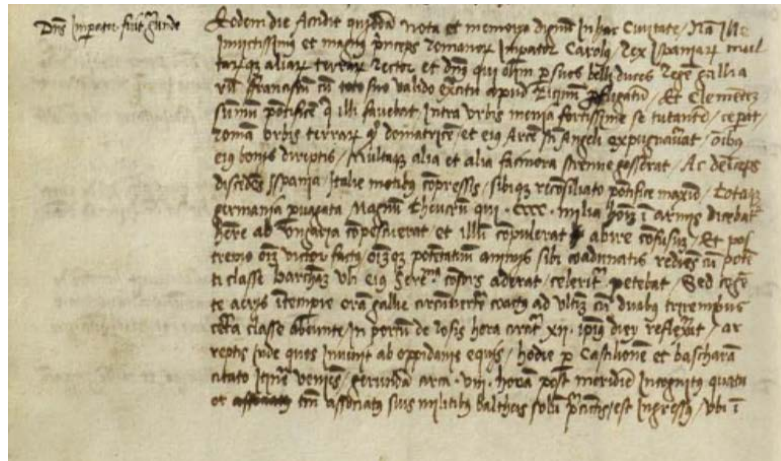 Dns Imperator fuit Gerunde
Eodem die Accidit quiddam nota et memoria dignum In hac Civitate / Nam Ille
Invictissimus et magnus princeps Romanorum Imperator Carolus / Rex Ispaniarum mul
tarumque aliarum terrarum Rector et dns qui olim per suos belli duces Regem gallia
rum ffranciscum cum toto suo valido exercitu apud profligavit / Et Clementem
summum pontificem qui illi favebat / Intra urbis menia fortissime se tutantem / cepit /
Romam orbis terrarum domatricem / et eius Arcem Sti Angeli expugnaverat / omnibus
eius bonis direptis / Multaque alia et alia facinora strenue gesserat / Ac deinceps
discedens Ispania / Italie motibus compressis / sibique reconsiliato pontifice maximo / totaque
germania Magnum Theucrum qui . CCCC . milia hominum in armis dicebatur
here ab Ungaria et illum compulerat abire confusum / Et pos
tremo omnium victor factus / omniumque potentatuum animis sibi coadunatis rediens cum poten
ti classe Barchinonam ubi eius consors aderat / celeriter petebat / Sed cogen
te aerys Intemperie oram gallie coactus ad ultimum cum duabus triremibus
classe In portum de Rosis hora circiter xii . ipsius diei / ar
reptis Inde quos Invenit ab oppidanis equis / hodie per Castilionem et bascharam
citato Itinere veniens / gerundam circa . viii . horam post meridiem Incognitus
et cum suis militibus baltheis solum precinctis / est Ingressus / ubi I